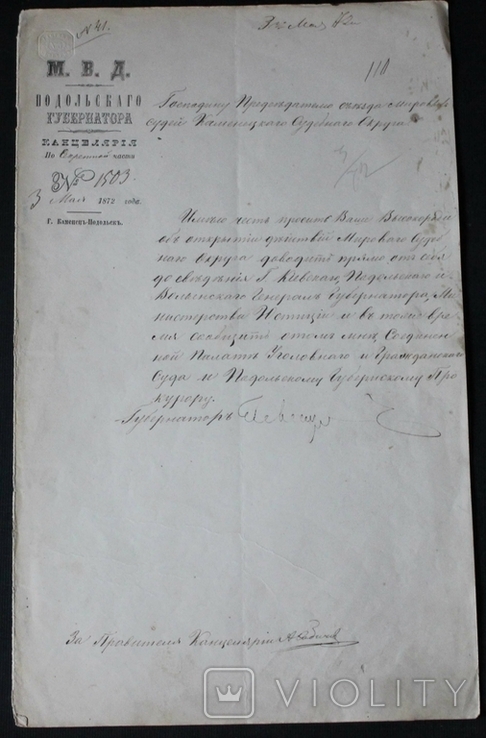 № 41.
3го Мая 72
110
М. В. Д.
ПОДОЛЬСКАГО
ГУБЕРНАТОРА
КАНЦЕЛЯРІЯ
По Секретной части
№ 1503
3 Мая 1872 года
Г. Каменецъ-Подольскъ.
Господину Предсѣдателю съѣзда Мировыхъ
судей Каменецкаго Судебнаго Округа
Имѣю честь просить Ваше Высокородіе
объ открытіи дѣйствій Мироваго Судеб
наго Округа доводить прямо отъ себя
до свѣдѣнія Г. Кіевскаго, Подольскаго и
Волынскаго Генералъ Губернатора, Ми
нистерства Юстиціи и въ тоже вре
мя сообщить о томъ мнѣ, Соединен
ной Палатѣ Уголовнаго и Гражданскаго
Суда и Подольскому Губернскому Про
курору.
Губернаторъ
За Правителя Канцеляріи
VIOLITY